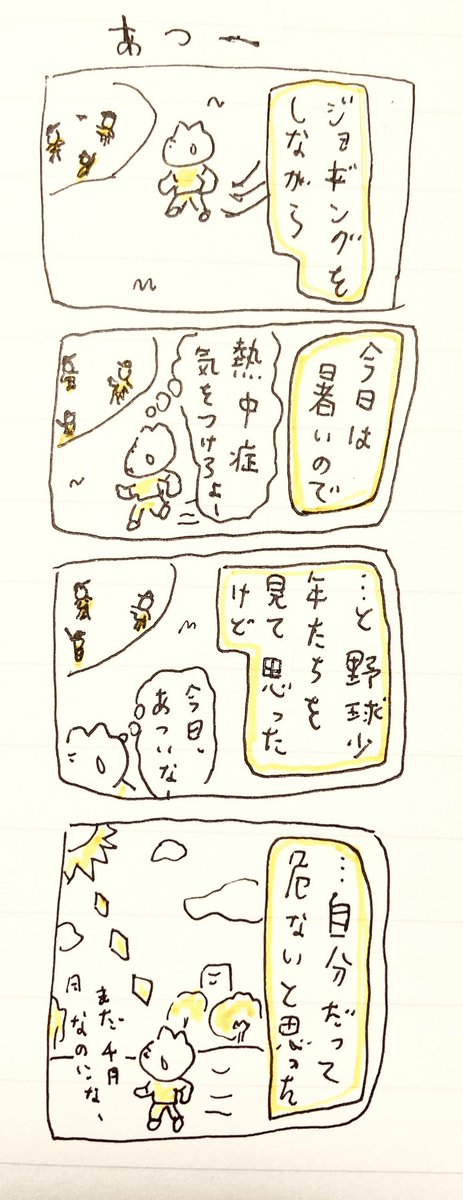 あつー
ジョギングを
しながら
今日は
暑いので
熱中症
気をつけろよー
…と野球少
年たちを
見て思った
けど
今日、
あついなー
…自分だって
危ないと思った
まだ4月
月なのになー